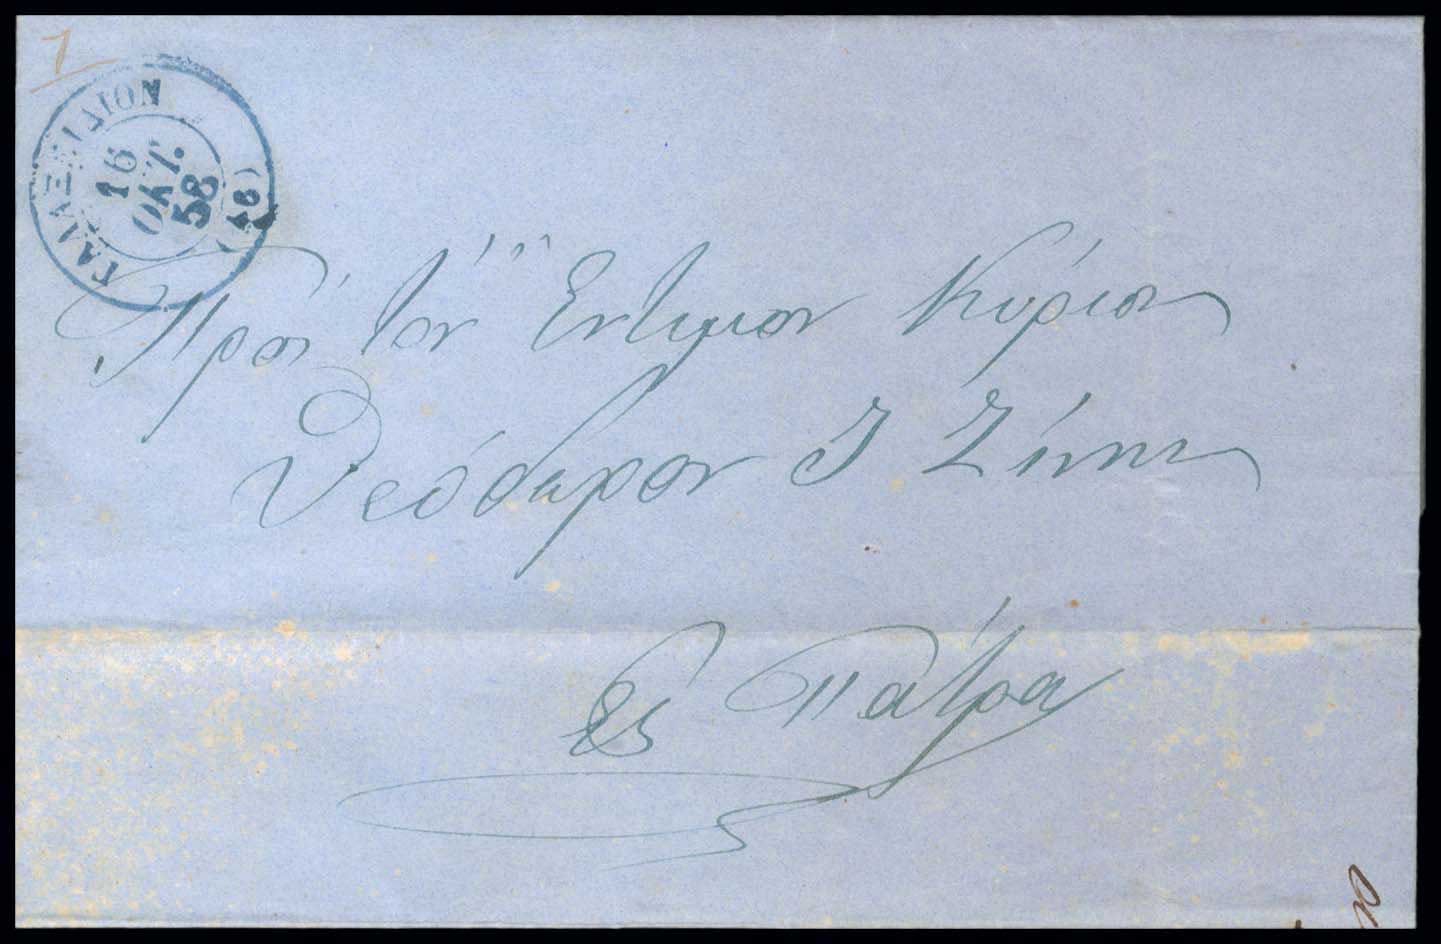 1
ΓΑΛΑΞΕΙΔΙΟΝ
16
ΟΚΤ.
58
(48)
Πρὸς τὸν Ἔντιμον Κύριον
Θεόδωρον Ι
Εἰς Πάτρα